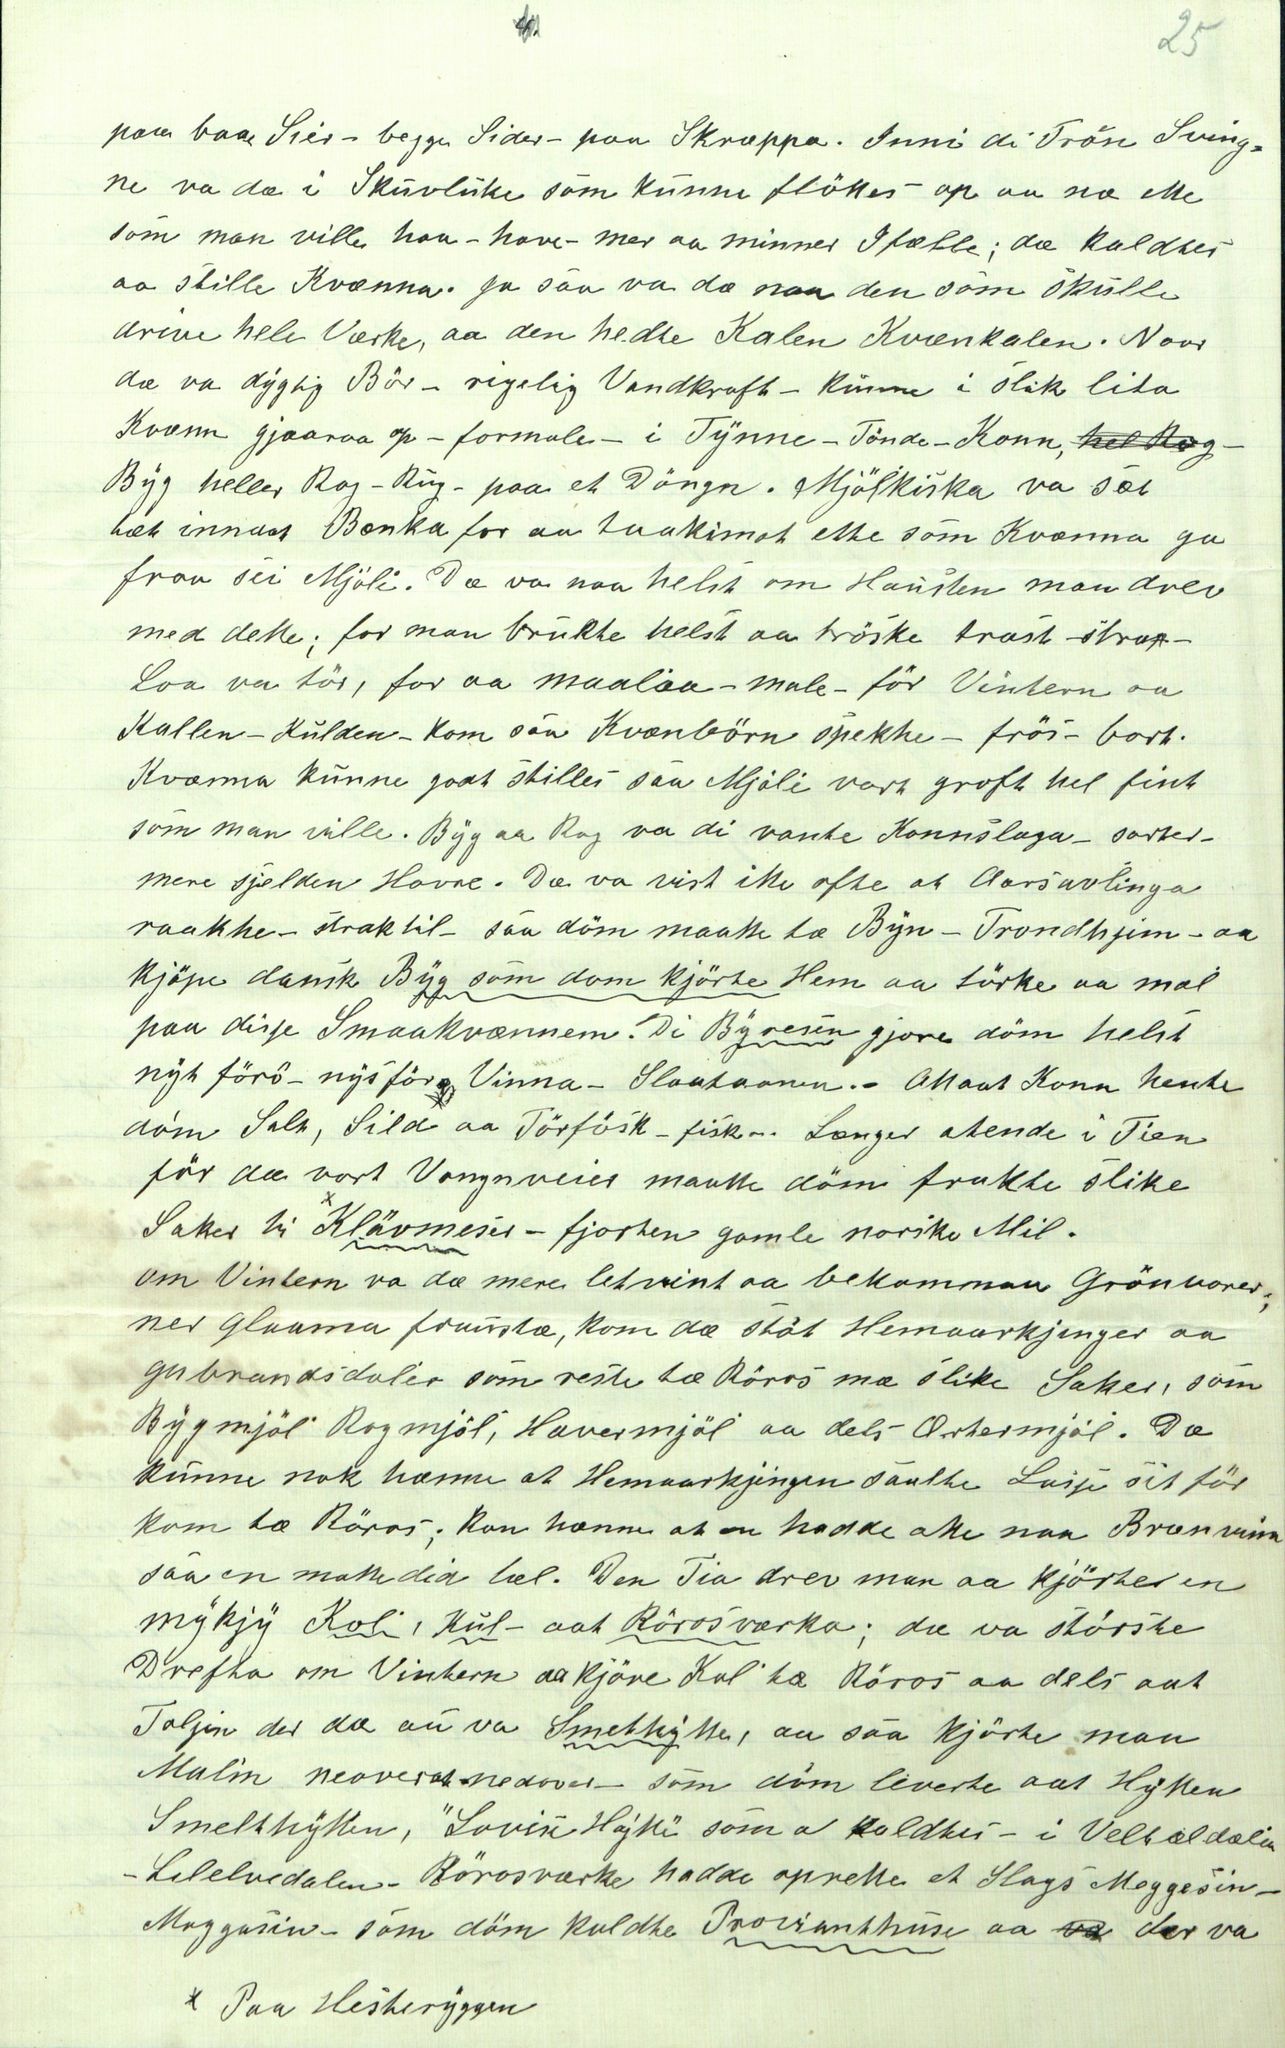 25
paa baae Sier - begge Sider - paa Skræppa. Inni di Trön Sving-
ne va dæ i Skuvluke som kunne flöttes op aa næ ette
som man ville haa - have - mer aa minner Ifælle; dæ kaldtes
aa stille Kvænna. Ja saa va dæ naa den som skulle
drive hele Værke, aa den hedte Kalen Kvænkalen. Naar
dæ va dygtig Bör - rigelig Vandkraft - kunne i slik lita
Kvænn gjaaraa op - formale - i Tynne - Tönde - Konn, hel Rog -
Byg heller Rog - Rug - paa et Döngn. Mjölkiska va sæt
tæt innaat Bænka for aa taakimot ette som Kvænna ga
fraa sei Mjöli. Dæ va naa helst om Hausten man drev
med dette; for man brukte helst aa tröske trast - strax -
Loa va tör, for aa maalaa - male - för Vintern aa
Kallen - Kulden - kom saa Kvænbörn spekte - frös - bort.
Kvænna kunne godt stilles saa Mjöli vart groft hel fint
som man ville. Byg aa Rog va di vante Konnslaga - sorter -
mere sjelden Havre. Dæ va vist ikke ofte at Aarsavlinga
raakte - straktil - saa döm maatte tæ Byn - Trondhjem - aa
kjöpe dansk Byg som dom kjörte Hem aa törke aa mol
paa disse Smaakvænnem. Di Byresin gjore döm helst
nyt förö - nysför Vinna - Slaataanen. - Attaat Konn hente
döm Salt, Sild aa Törfösk - fisk -. Længer atende i Tien
för dæ vart Vangnveier maatte döm frakte slike
Saker hi Klävmeser x - fjorten gamle norske Mil.
om Vintern va dæ mere letvint aa bekommaa Grönvarer;
ner Glaama fraustæ, kom dæ støt Hemaarkjinger aa
gubrandsdaler som reste tæ Röros mæ slike Saker, som
Bygmjöl Rogmjöl, Havermjöl aa dels Ertermjöl. Dæ
kunne nok hænne at Hemaarkjingen saalte Lasse sit för
kom tæ Röros; kan hænne at en hadde atte naa Brænvinn
saa en matte did læl. Den Tia drev man aa kjörte en
mykjy Kol, Kul - aat Rörosværka; dæ va störste
Drefta om Vintern aa kjöre Kol tæ Röros aa dels aat
Toljin der dæ au va Smelthytte, aa saa kjörte man
Malm neoverat - nedover - som döm leverte aat Hytten
Smelthytten, "Lovise Hytte" som a kaldtes - i Veltældalin
- Lilelvedalen - Rörosværke hadde oprette et Slags Moggesin -
Maggasin - som döm kaldte Provianthuse aa va der va
x Paa Hesteryggen